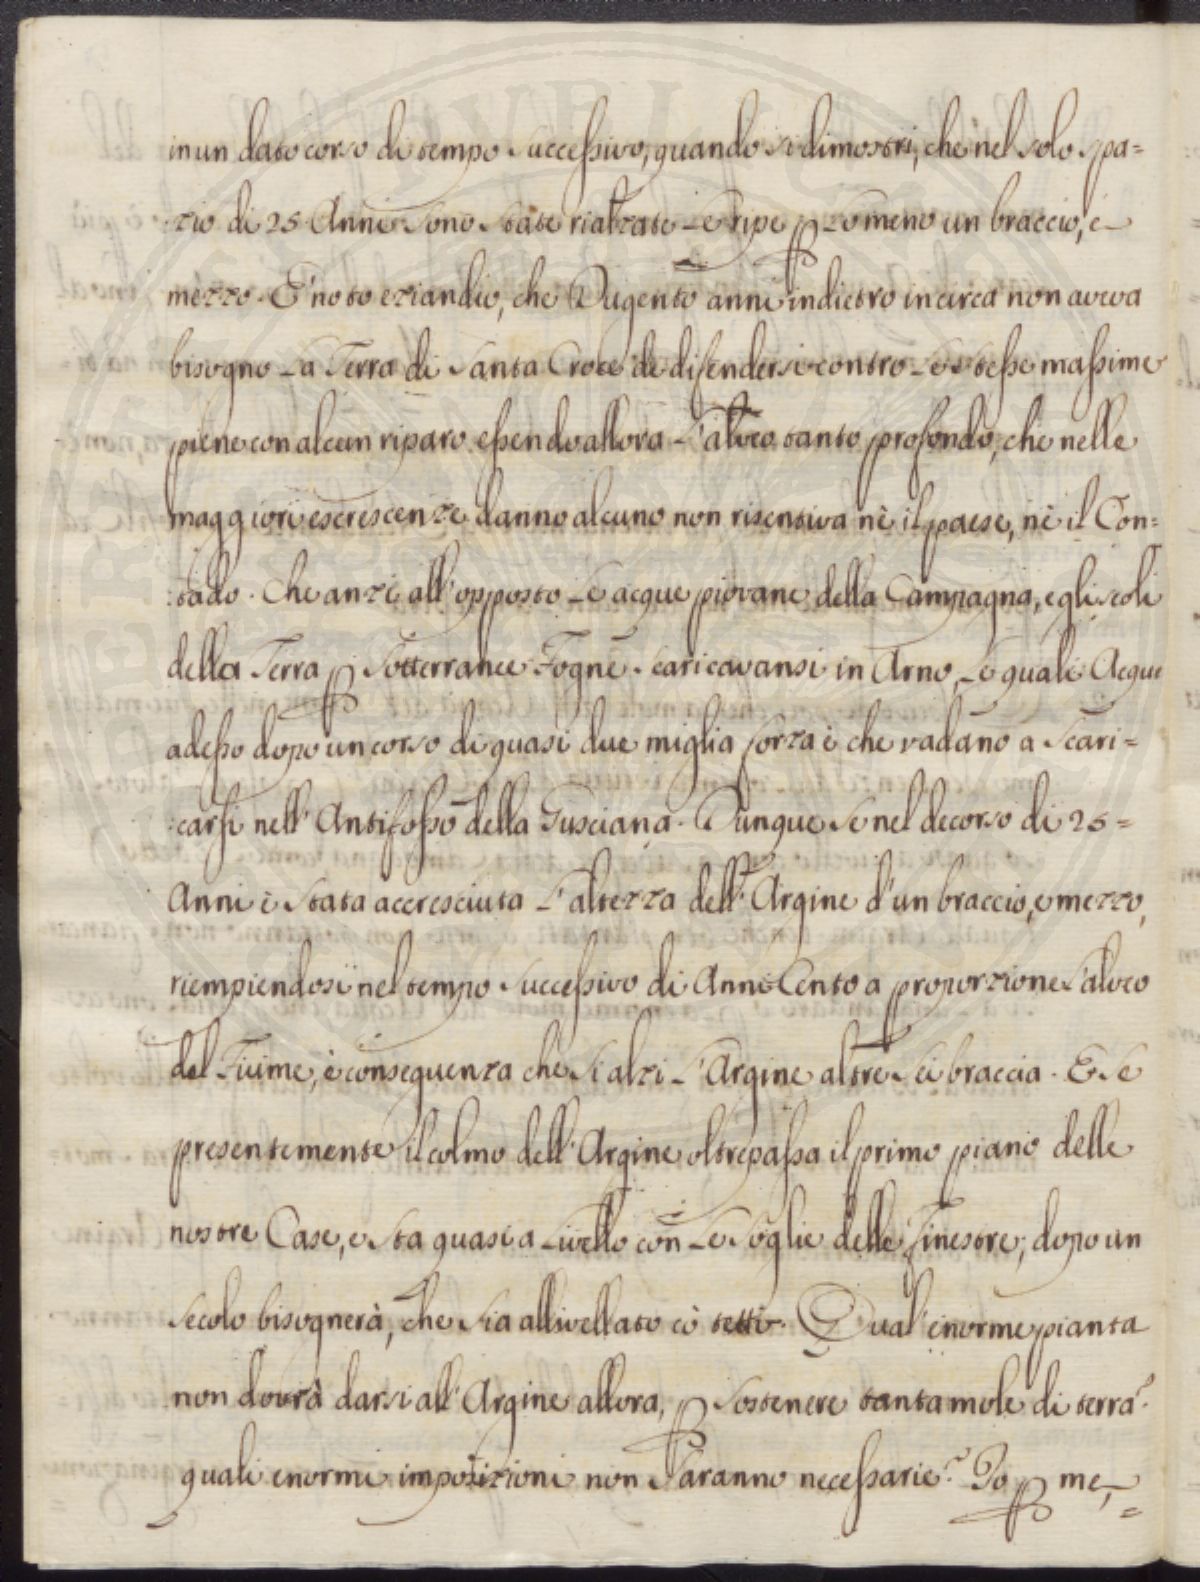 in un dato corso di tempo successivo, quando si dimostri, che nel solo spa=
:zio di 25 Anni sono state rialzate le ripe p lo meno un braccio, e
mezzo. E' noto eziandio, che Dugento anni indietro incirca non aveva
bisogno la Terra di Santa Croce di difendersi contro le stesse massime
piene con alcun riparo essendo allora l'alveo tanto profondo, che nelle
maggiori escrescenze danno alcuno non risentiva nè il paese, nè il Con=
:tado. Che anzi all'opposto le acque piovane della Campagna, e gli scoli
della Terra p sotterranee Fogne scaricavansi in Arno, le quali Acque
adesso dopo un corso di quasi due miglia forza è che vadano a scari=
:carsi nell'Antifosso della Gusciana. Dunque se nel decorso di 25=
Anni è stata accresciuta l'altezza dell'Argine d'un braccio, e mezzo,
riempiendosi nel tempo successivo di Anni Cento a proporzione l'alveo
del Fiume, è conseguenza che si alzi l'Argine altre sei braccia. E se
presentemente il colmo dell'Argine oltrepassa il primo piano delle
nostre Case, e sta quasi a livello con le soglie delle finestre, dopo un
secolo bisognerà, che sia allivellato cò tetti. Qual'enorme pianta
non dovrà darsi all'Argine allora, p sostenere tanta mole di terra?
quali enormi imposizioni non saranno necessarie? Io p me,=